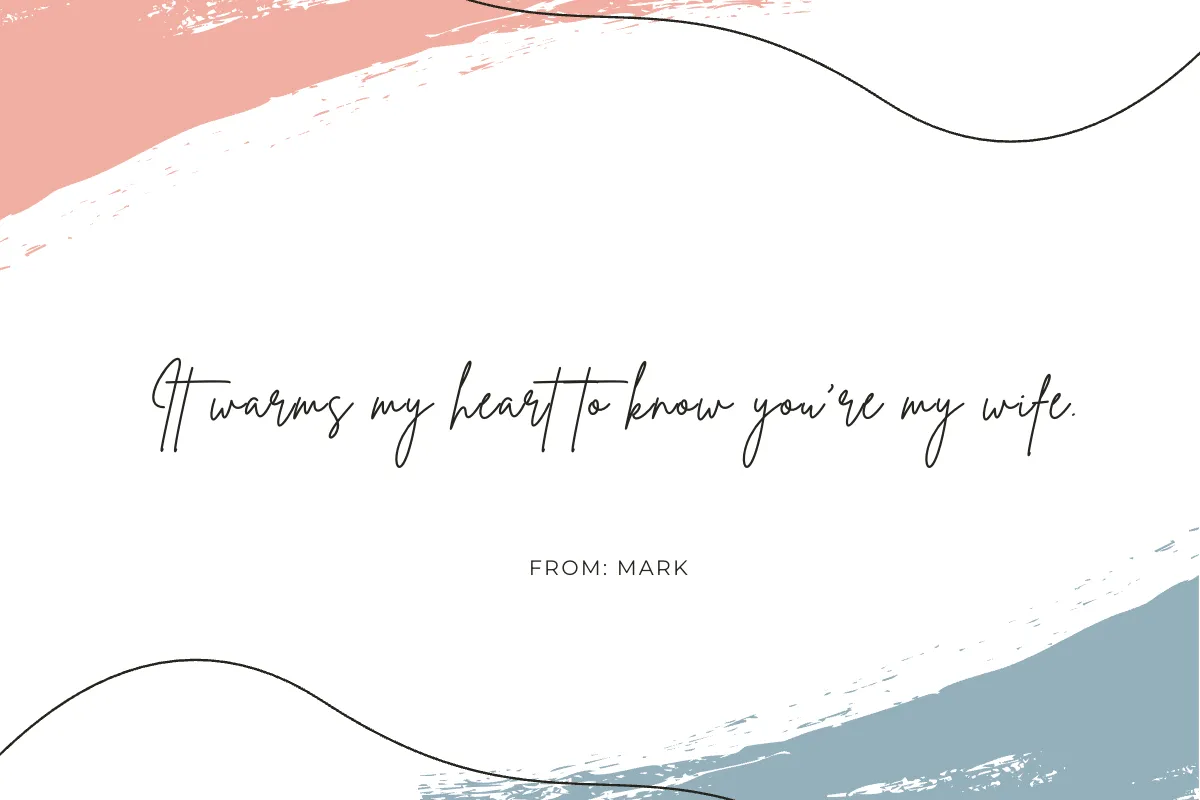 It warms my heart to know you're my wife.
FROM: MARK